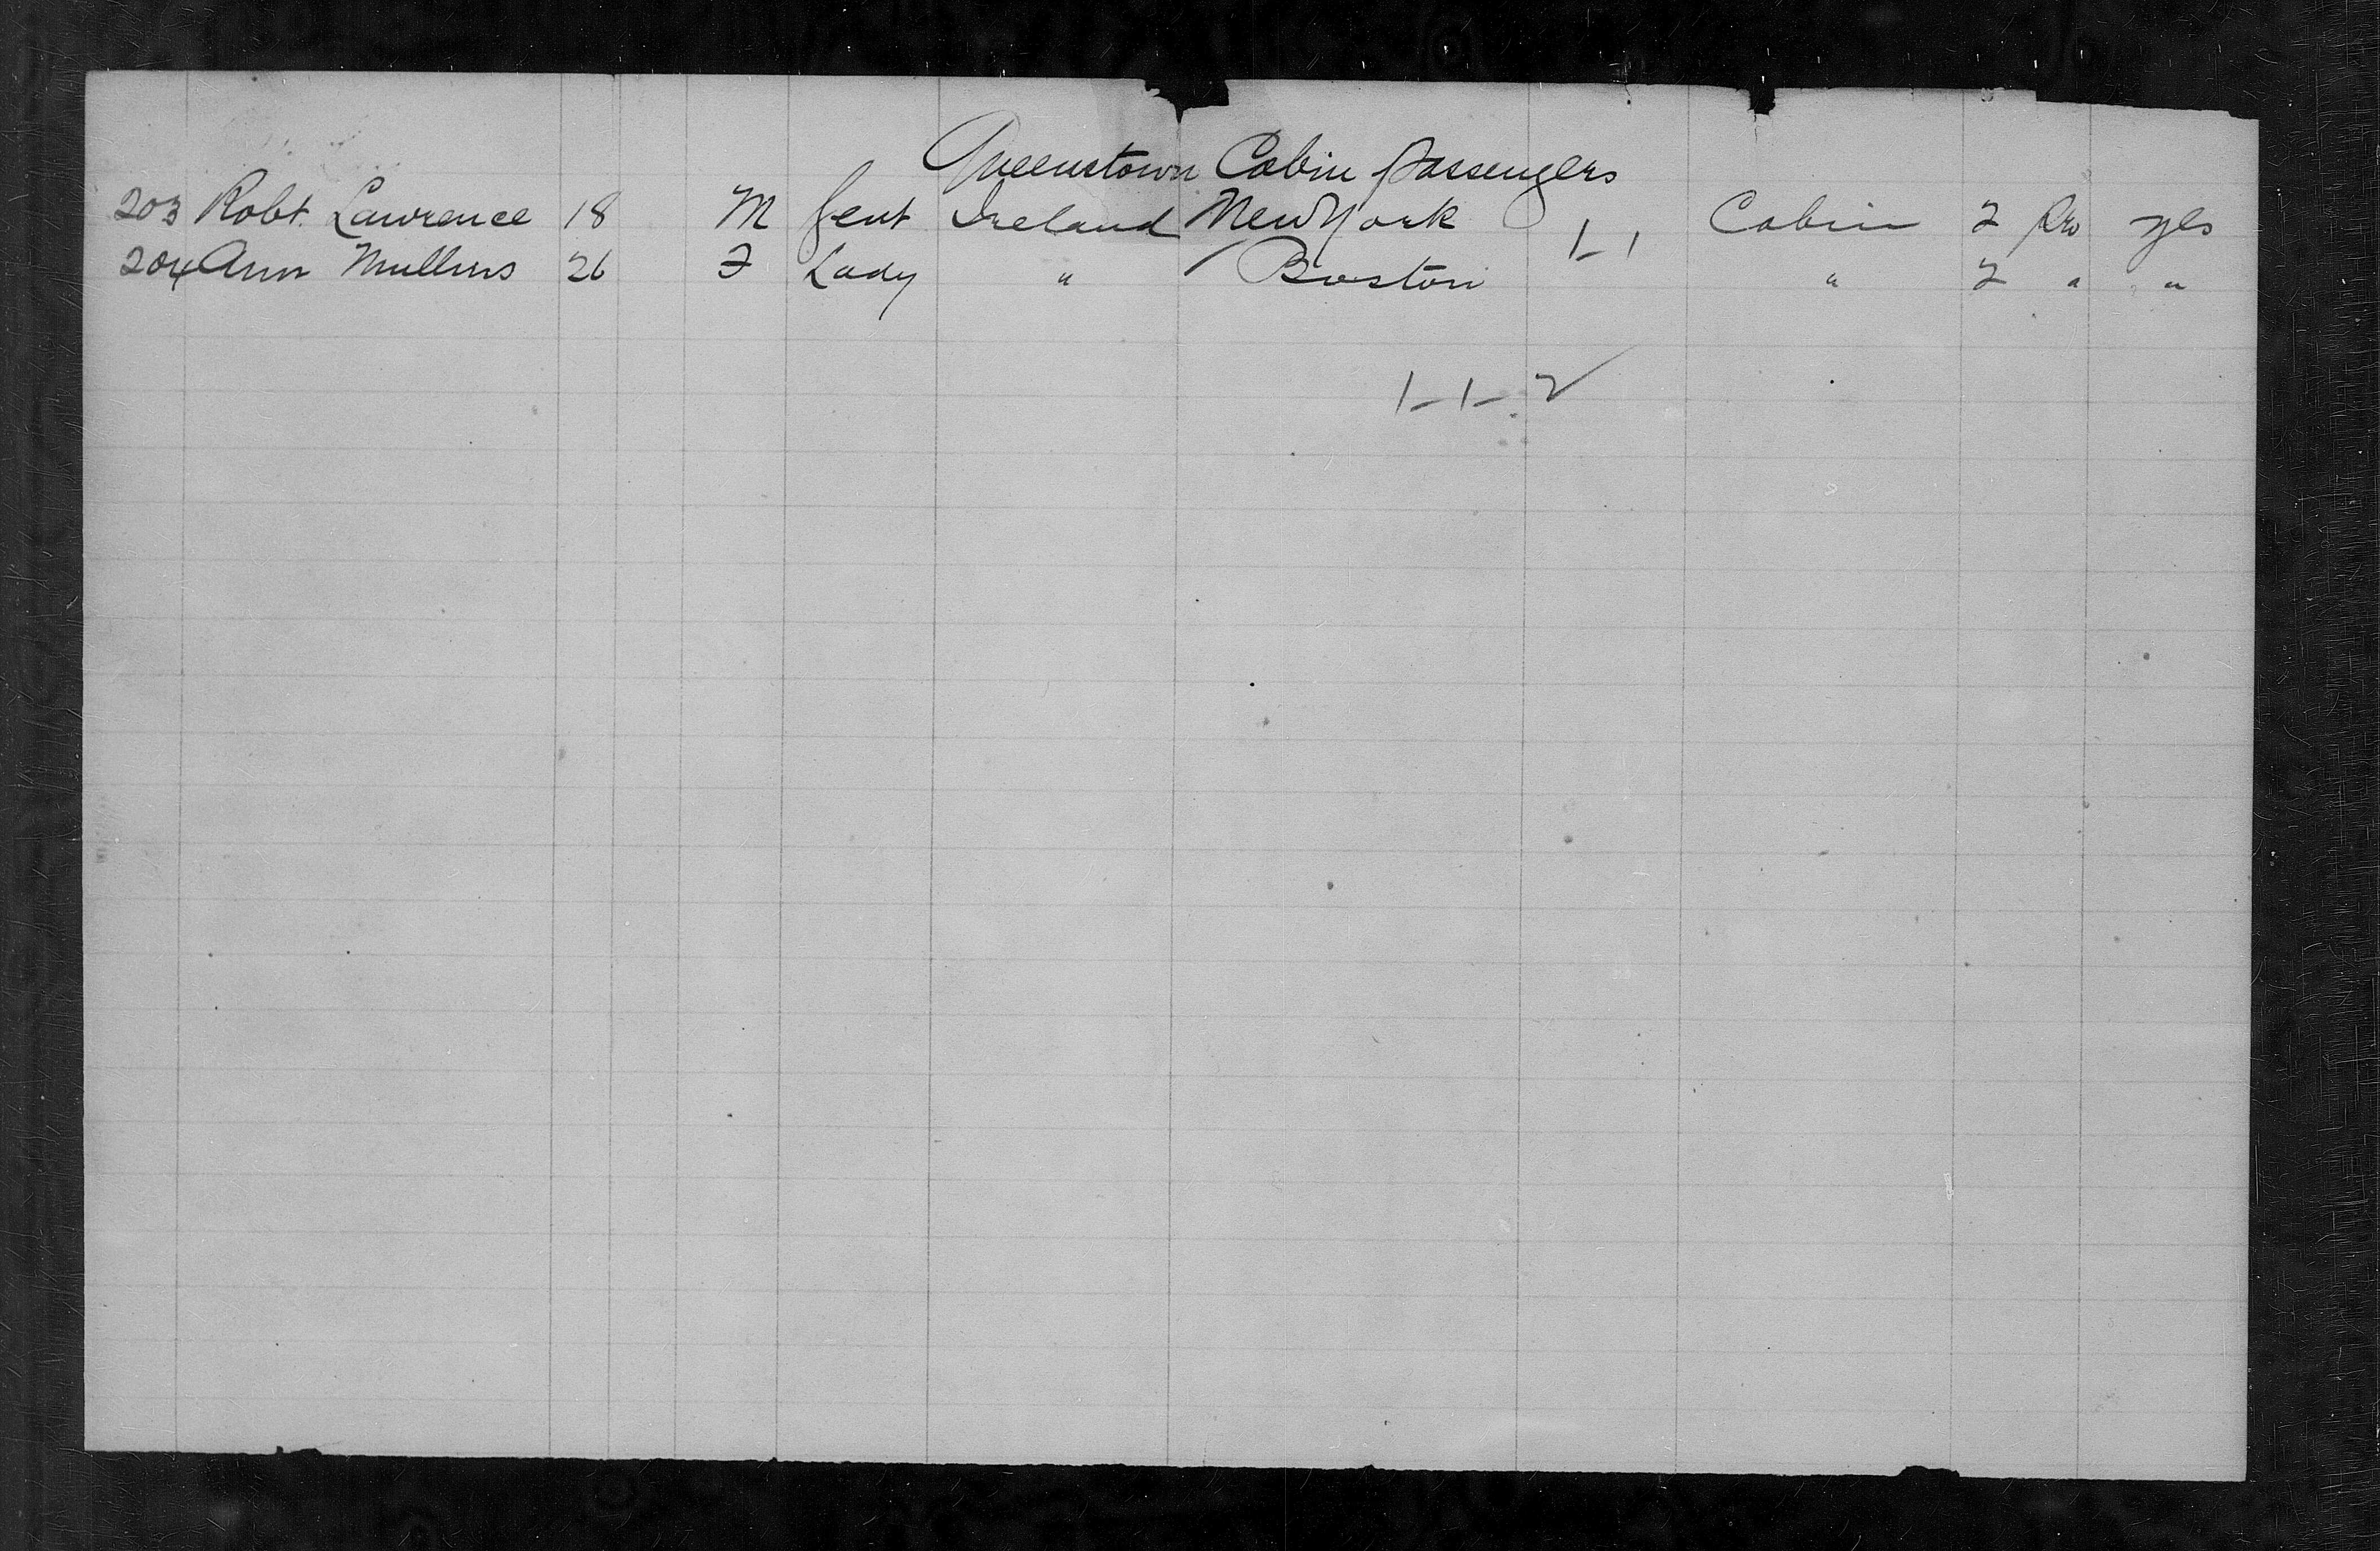 Queenstown Cabin passengers
203 Robt. Lawrence 18 M Gent Ireland New York 1-1 Cabin 2 yes
204 Ann Mullins 26 F Lady " Boston " 2 " "
1-1-2